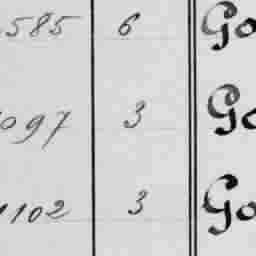 585 6 Go
097 3 Go
1102 3 Go